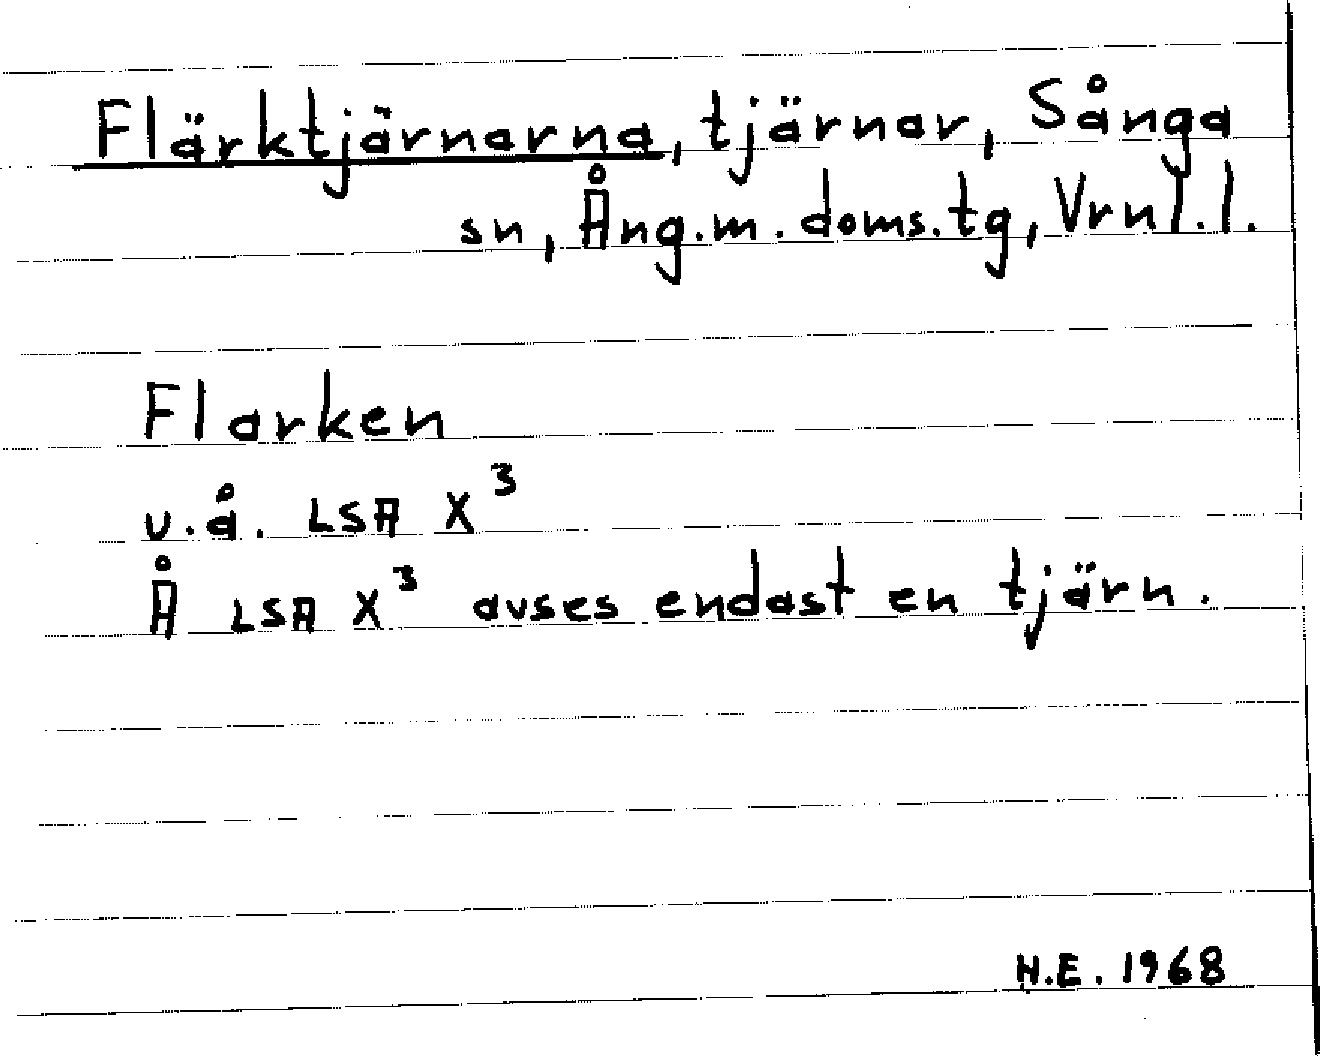 Flärktjärnarna, tjärnar, Sånga
sn, Ång.m. doms.tg, Vrnl.l.
Flarken
u.å. LSA X³
Å LSA X³ avses endast en tjärn.
H.E. 1968